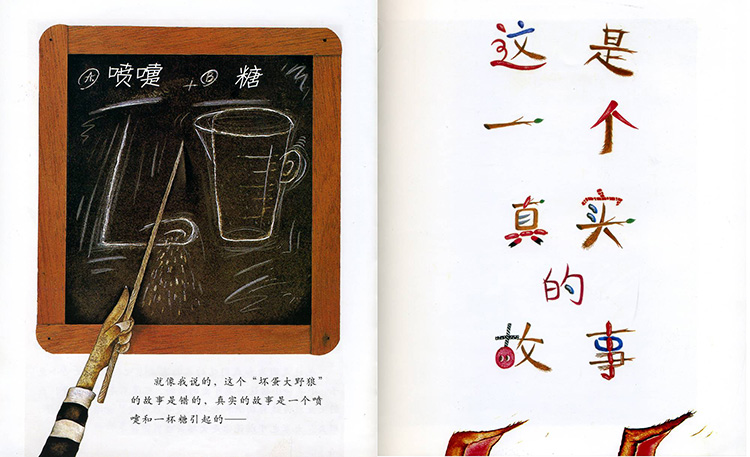 A 喷嚏 + B 糖
就像我说的，这个“坏蛋大野狼”
的故事是错的，真实的故事是一个喷
嚏和一杯糖引起的——
这是
一个
真实
的
故事